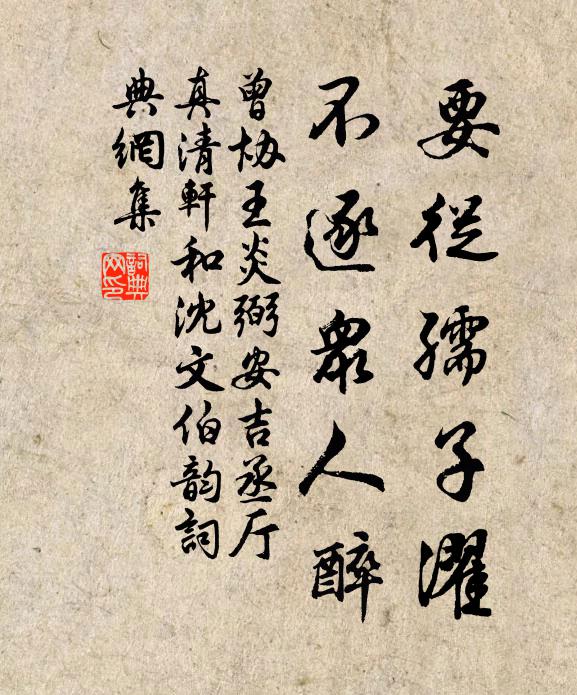 要從孺子濯
不逐衆人醉
曾协王炎弼安吉丞厅
真清軒和沈文伯韵詞
典網集
詞典网印